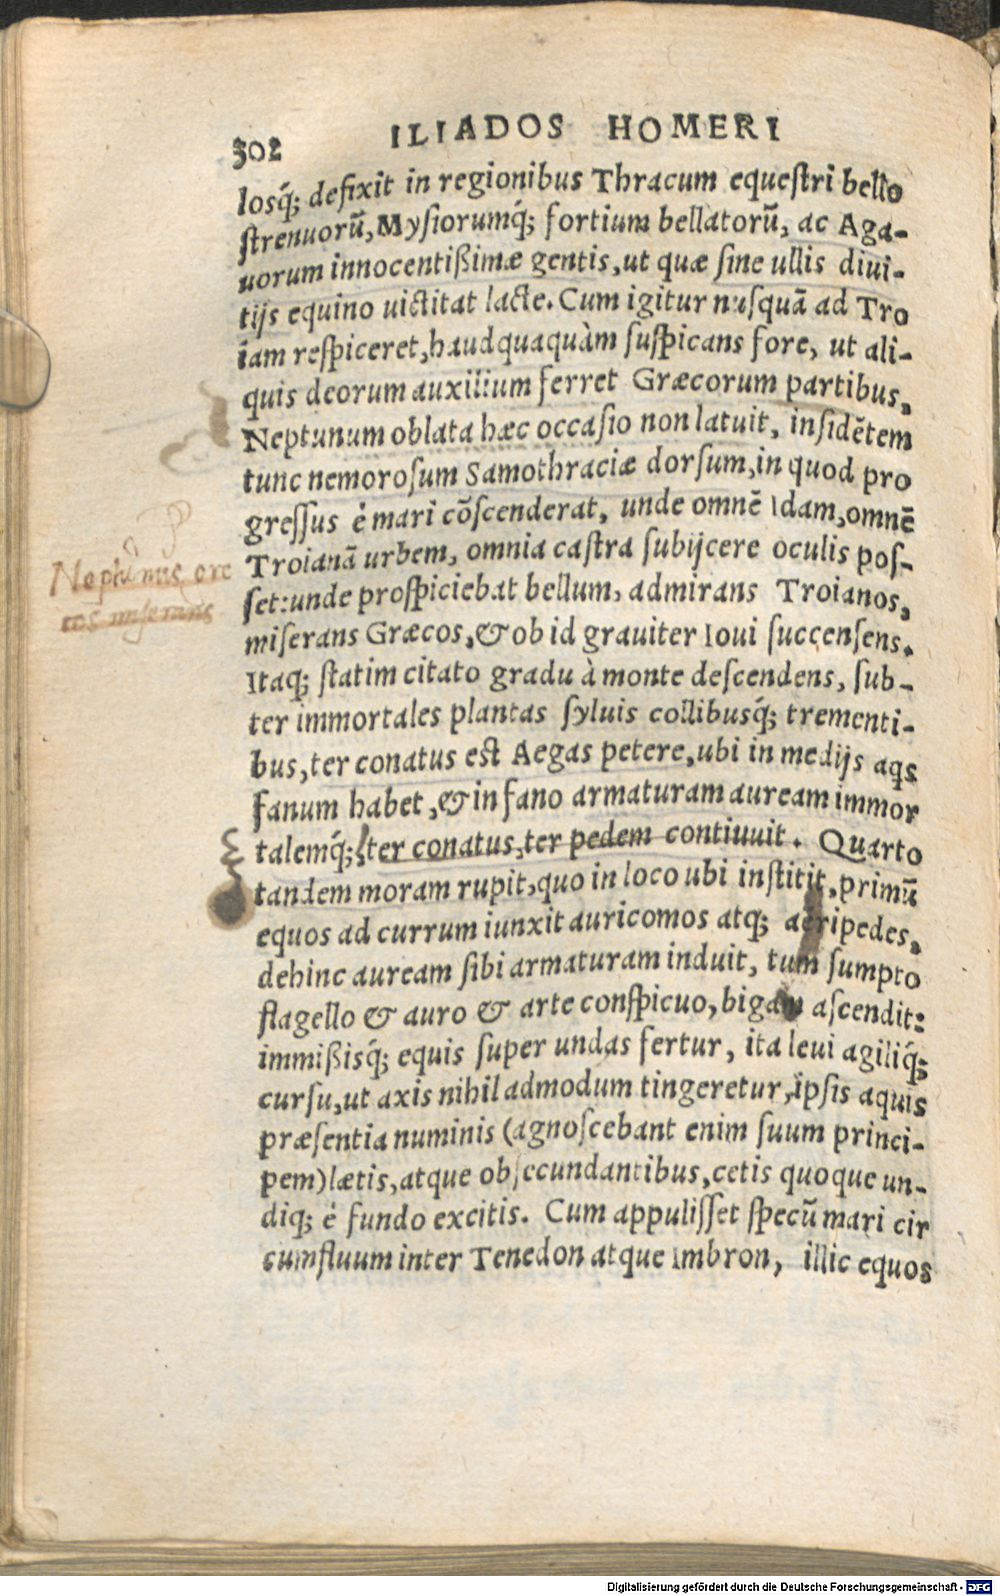 302 ILIADOS HOMERI
losq́; defixit in regionibus Thracum equeſtri bello
ſtrenuorũ, Myſiorumq́; fortium bellatorũ, ac Aga-
uorum innocentißimæ gentis, ut quæ ſine ullis diui-
tijs equino uictitat lacte. Cum igitur nuſquã ad Tro
iam reſpiceret, haudquaquàm ſuſpicans fore, ut ali-
quis deorum auxilium ferret Græcorum partibus,
Neptunum oblata hæc occaſio non latuit, inſidẽtem
tunc nemoroſum Samothraciæ dorſum, in quod pro
greſſus è mari cõſcenderat, unde omnẽ Idam, omnẽ
Troianã urbem, omnia caſtra ſubijcere oculis poſ-
ſet: unde proſpiciebat bellum, admirans Troianos,
miſerans Græcos, & ob id grauiter Ioui ſuccenſens.
Itaq; ſtatim citato gradu à monte deſcendens, ſub-
ter immortales plantas ſyluis collibusq́; trementi-
bus, ter conatus eſt Aegas petere, ubi in medijs aqs
fanum habet, & in fano armaturam auream immor
talemq́; ter conatus, ter pedem contiuuit. Quarto
tandem moram rupit, quo in loco ubi inſtitit, primũ
equos ad currum iunxit auricomos atq; aeripedes,
dehinc auream ſibi armaturam induit, tum ſumpto
flagello & auro & arte conſpicuo, bigam aſcendit:
immißisq́; equis ſuper undas fertur, ita leui agiliq́;
curſu, ut axis nihil admodum tingeretur, ipſis aquis
præſentia numinis (agnoſcebant enim ſuum princi-
pem) lætis, atque obſecundantibus, cetis quoque un-
diq; è fundo excitis. Cum appuliſſet ſpecũ mari cir
cumfluum inter Tenedon atque Imbron, illic equos
Neptunus
miſerans
Digitalisierung gefördert durch die Deutsche Forschungsgemeinschaft - DFG